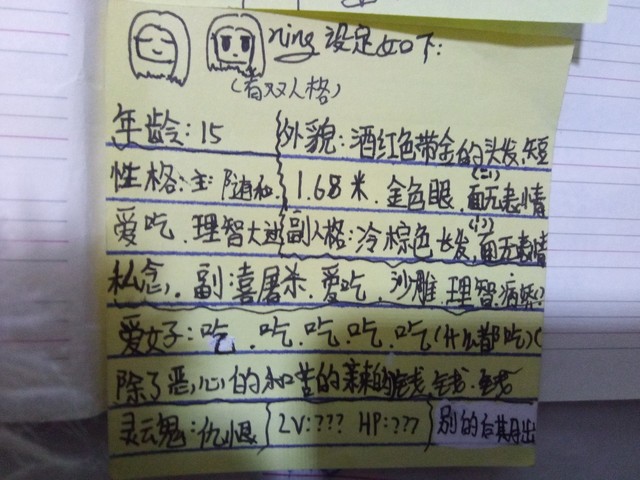 ning 设定如下:
(有双人格)
年龄:15 外貌:酒红色带金的头发,短
性格:主:随和、 1.68米、金色眼、面无表情(一)
爱吃、理智大过 副人格:冷棕色长发,面无表情(!)
私念)、副:喜屠杀、爱吃、沙雕、理智、病娇
爱好:吃、吃、吃、吃、吃(什么都吃)(
除了恶心的和苦的辣的)钱、钱、钱
灵魂:仇恨 LV:??? HP:??? 别的后期出